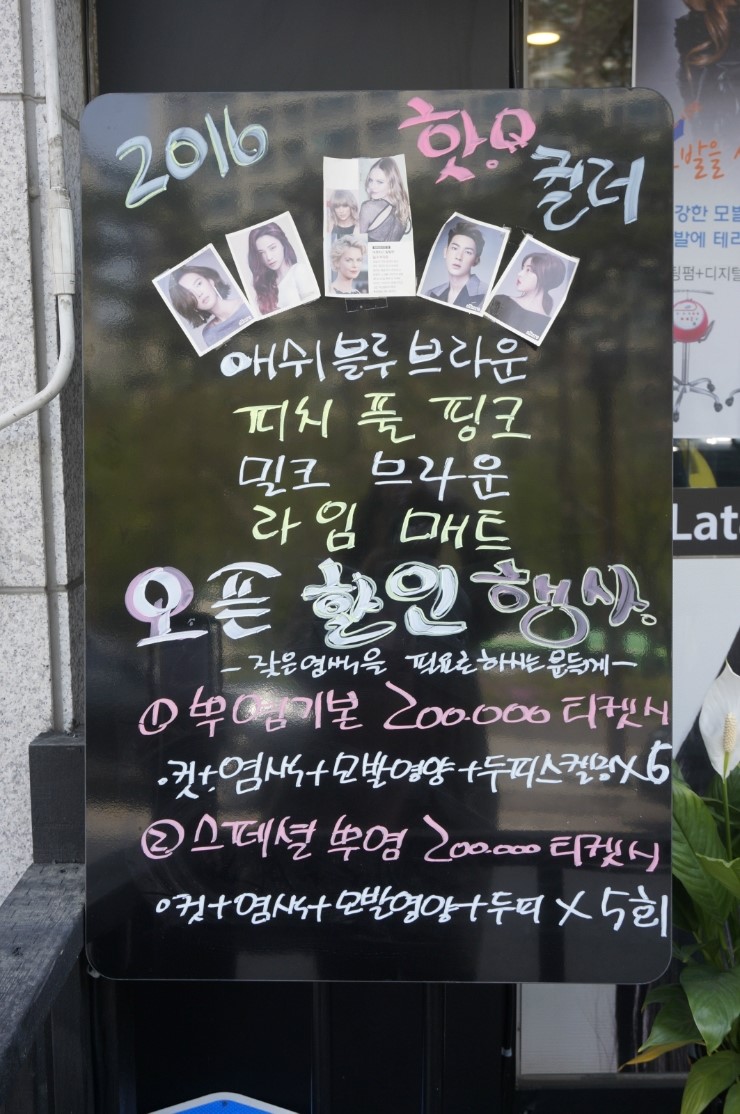 2016 핫! 컬러
애쉬블루브라운
피치 풀 핑크
밀크 브라운
라임 매트
오픈 할인 행사
- 잦은염색을 필요로하시는분들께 -
① 뿌염기본 200.000 티켓시
·컷+염색+모발영양+두피스켈링X5
② 스페셜 뿌염 200.000 티켓시
·컷+염색+모발영양+두피 X 5회
발을
강한 모발
발에 테라
팅펌+디지털
Lat